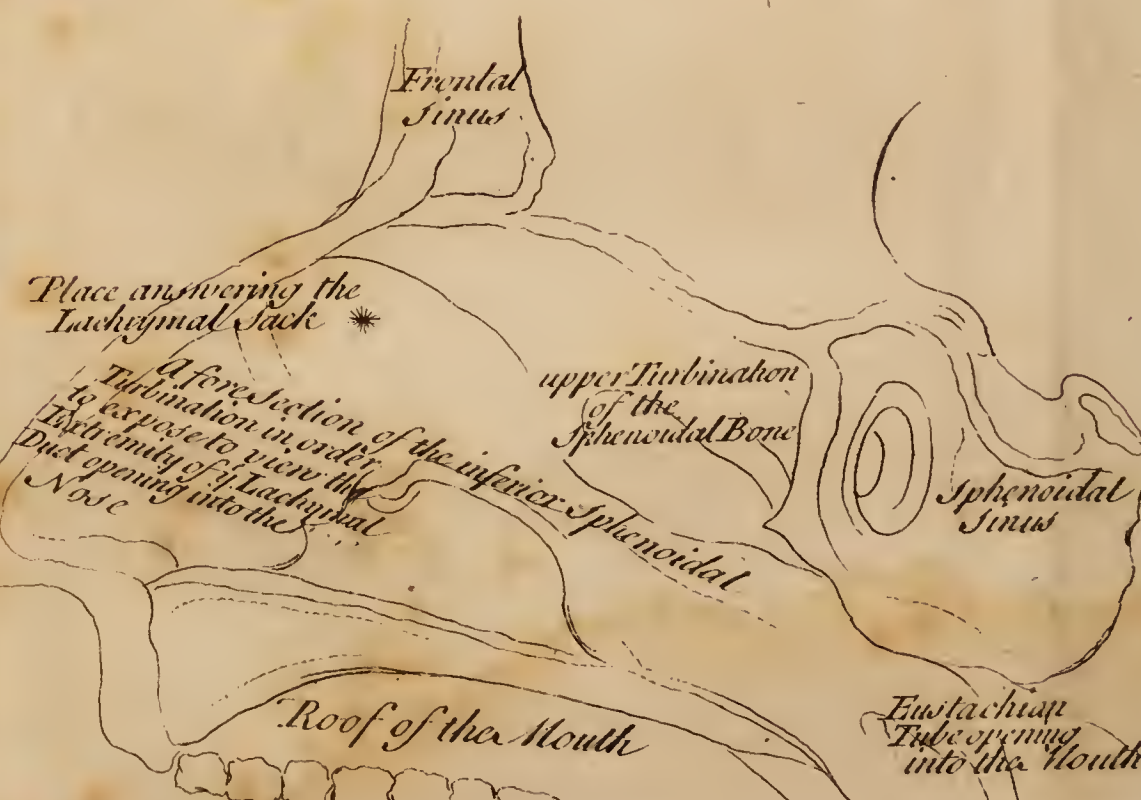 Frontal
Sinus
Place answering the
Lachrymal Sack
A fore Section of the inferior Sphenoidal
Turbination in order
to expose to view the
Extremity of yͤ Lachrymal
Duct opening into the
Nose
upper Turbination
of the
Sphenoidal Bone
Sphenoidal
Sinus
Roof of the Mouth
Eustachian
Tube opening
into the Mouth